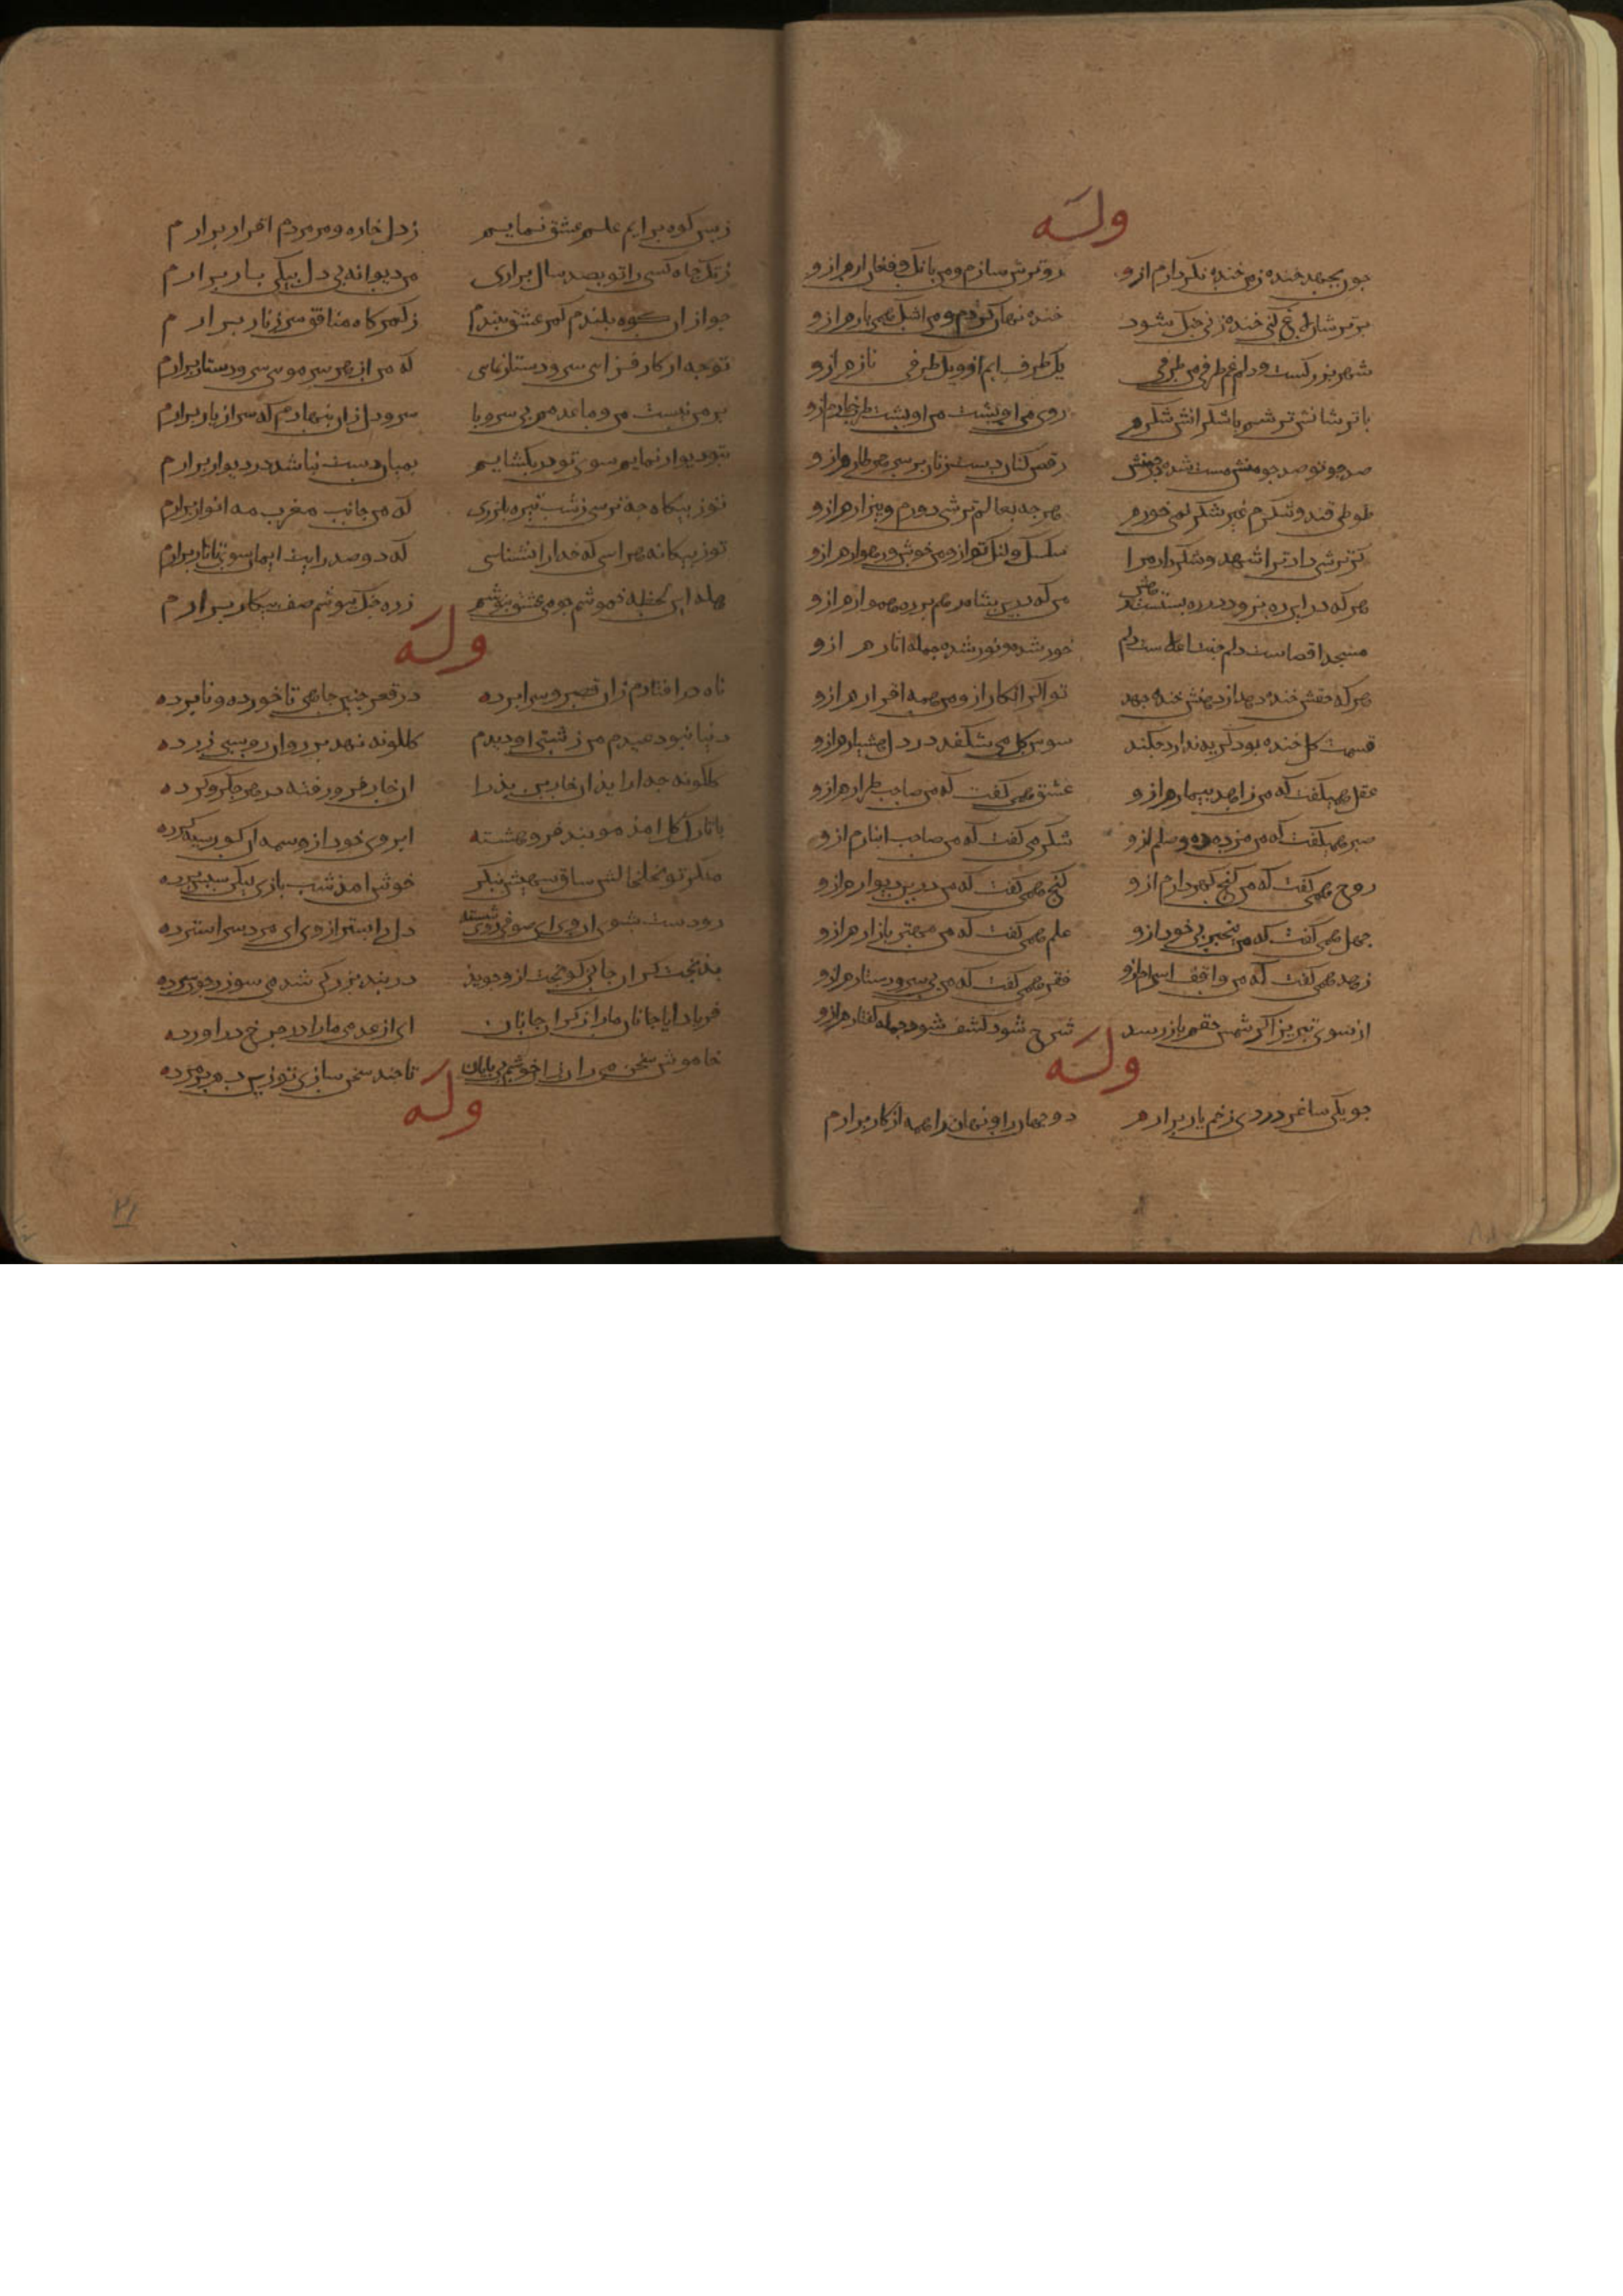 وله
جون بجهد خنده زمن خنده نکردارم ازو روترش سازم ومن بانک وفغان ارم ازو
برترشان لاغ کنی خنده زنی جنک شود خنده نهان کردم ومن اشک همی بارم ازو
شهر بزرکست و دلم غم طرفی من طرفی یک طرف ابم ازو ویک طرفی نارم ازو
باترشانش ترشم باشکرانش شکرم روی من او بشت من او بشت طرب خارم ازو
صد جو تو صد جو منش مست شده در جمنش رقص کنان دست زنان بر سر هر طارم ازو
طوطی قند وشکرم غیر شکر می نخورم هرجه بعالم ترشی دورم وبیزارم ازو
کر ترشی داد ترا شهد وشکر داد مرا سکسک ولنک تو ازو من خوش ورهوارم ازو
هرکه درین ره نرود دره ودوله ست رهش من که درین شاه رهم بر ره هموارم ازو
مسجد اقصاست دلم جنت اعلاست دلم حور شده نور شده جمله اثارم ازو
هرکه حقش خنده دهد از دهنش خنده جهد تو اکر انکار ازو من همه اقرارم ازو
قسمت کل خنده بود کریه ندارد جکند سوسن وکل می شکفد در دل هشیارم ازو
عقل همیکفت که من زاهد بیمارم ازو عشق همی کفت که من صاحب طرارم ازو
صبر همیکفت که من مزده ده وصلم ازو شکر می کفت که من صاحب انبارم ازو
روح همی کفت که من کنج کهردارم ازو کنج همی کفت که من در بن دیوارم ازو
جهل همی کفت که من بیخبرم بی خود ازو علم همی کفت که من مهتر بازارم ازو
زهد همی کفت که من واقف اسرارم ازو فقر همی کفت که من بی سر ودستارم ازو
از سوی تبریز اکر شمس حقم باز رسد شرح شود کشف شود جمله کفتارم ازو
وله
جو یکی ساغر دردی زخم یار برارم دو جهان را ونهان را همه از کار برارم
زبس کوه برایم علم عشق نمایم زدل خاره ومرمر دم اقرار برارم
زتک جاه کسی را تو بصد سال براری من دیوانه بی دل بیکی بار برارم
جو ازان کوه بلندم کمر عشق ببندم زکمرکاه منافق سر زنار برارم
تو جه از کار فزایی سر ودستار نمایی که من از هر سر مویی سر ودستار برارم
بر من نیست من وما عدمم بی سر وبا سر ودل زان بنهادم که سر از یار برارم
بتو دیوار نمایم سوی تو در بکشایم بمیان دست نباشد در ودیوار برارم
تو ز بیکاه جه ترسی زشب تیره بلرزی که من از جانب مغرب مه انوار برارم
تو ز بیکانه هراسی که خدا را نشناسی که دو صد رایت ایمان سوی تاتار برارم
هله این لحظه خموشم جو می عشق بنوشم زره جنک ببوشم صف بیکار برارم
وله
ناه درافتادم زان قصر وسرابرده در قعر جنین جاهی ناخورده ونابرده
دنیا نبود عیدم من زشتی او دیدم کلکونه نهد بر رو ان روسبی زرده
کلکونه جه اراید ان خاربن بد را ان خار فرو رفته در هر جکر وکرده
با تارک کل امد موبند فرو هشته ابروی خود از وسمه ان کور سیه کرده
منکر تو بخلخالش ساق سیهش بنکر خوش امد شب بازی لیک از سبس برده
رو دست بشو از وی ای صوفی رو شسته دل را بستر از وی ای مرد سر استرده
بدبخت کران جانی کو بخت ازو جوید دربند بزرکی شد می سوزد جون خرده
فریاد ایا جانان مارا زکران جانان ای از عدمی مارا در جرخ دراورده
خاموش سخن می ران زان خوش دم بی بایان تا جند سخن سازی تو زین دم بزمرده
وله